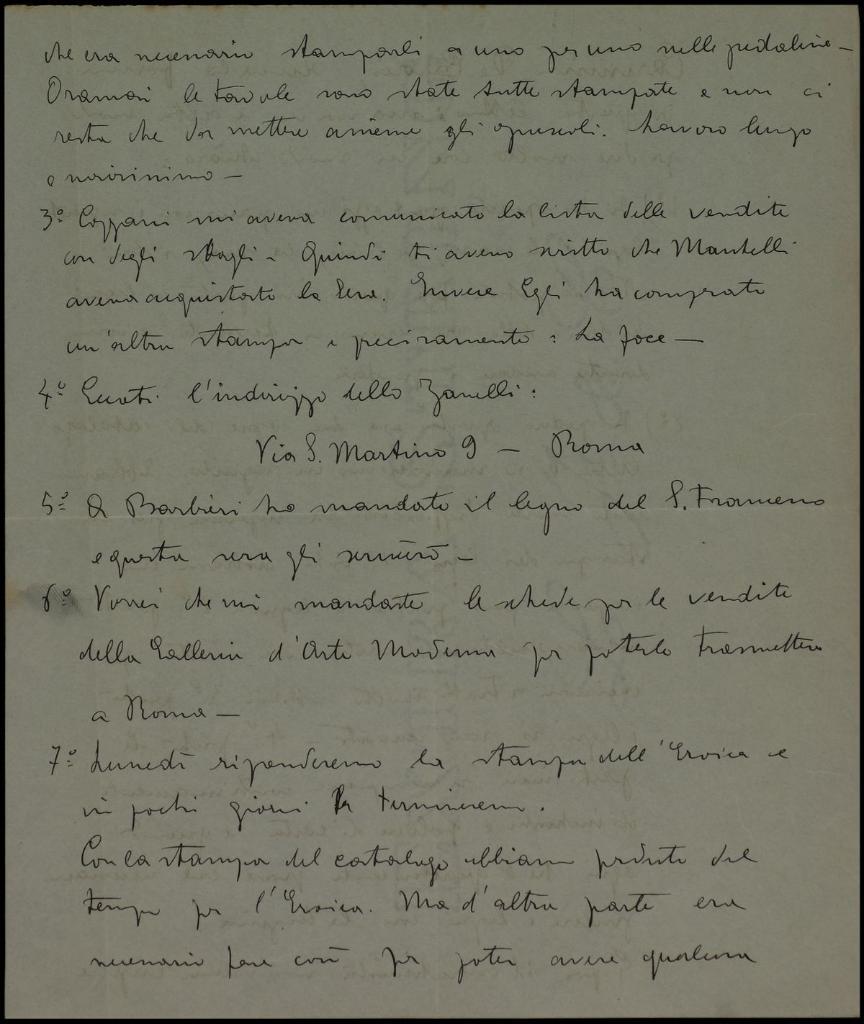 che era necessario stamparli a uno per uno nelle pedaline —
Oramai le tavole sono state tutte stampate e non ci
resta che da mettere assieme gli opuscoli. Lavoro lungo
e noiosissimo —
3º Cozzani mi aveva comunicato la lista delle vendite
con degli sbagli - Quindi ti avevo scritto che Mantelli
aveva acquistato la Sera. Invece Egli ha comprato
un'altra stampa e precisamente: La foce —
4º Eccoti l'indirizzo dello Zanelli:
Via S. Martino 9 — Roma
5º A Barbieri ho mandato il legno del S. Francesco
e questa sera gli scriverò —
6º Vorrei che mi mandaste le schede per le vendite
della Galleria d'Arte Moderna per poterle trasmettere
a Roma —
7º Lunedì riprenderemo la stampa dell'Eroica e
in pochi giorni la termineremo.
Con la stampa del catalogo abbiamo perduto del
tempo per l'Eroica. Ma d'altra parte era
necessario fare così per poter avere qualcosa